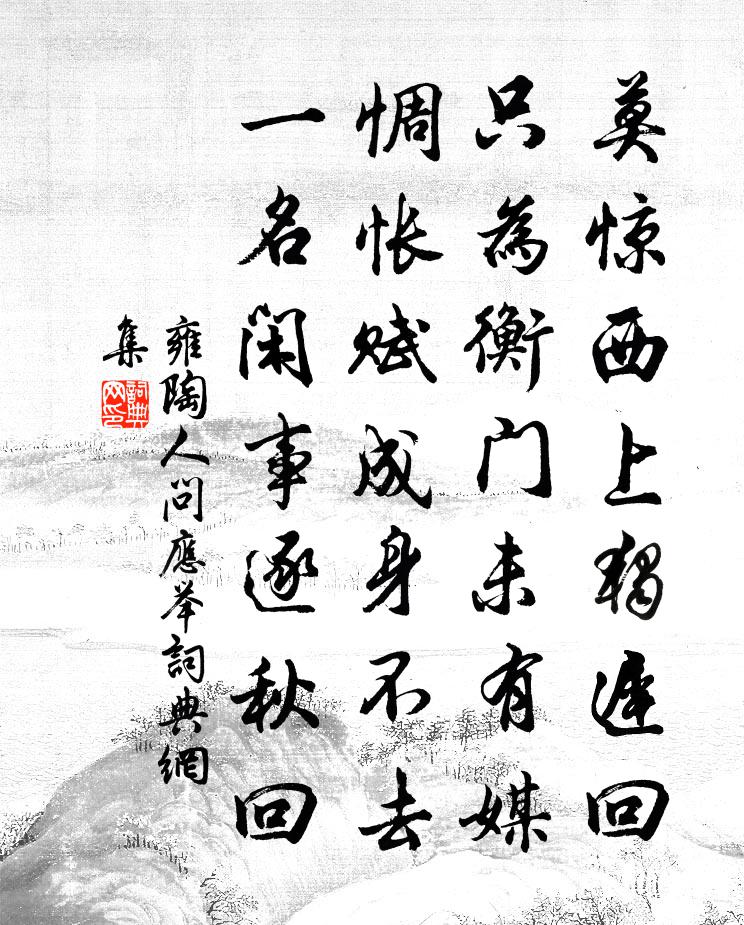 莫惊西上独遲回
只為衡门未有媒
惆怅赋成身不去
一名闲事逐秋回
雍陶人问應举詞典網
集
詞典网印